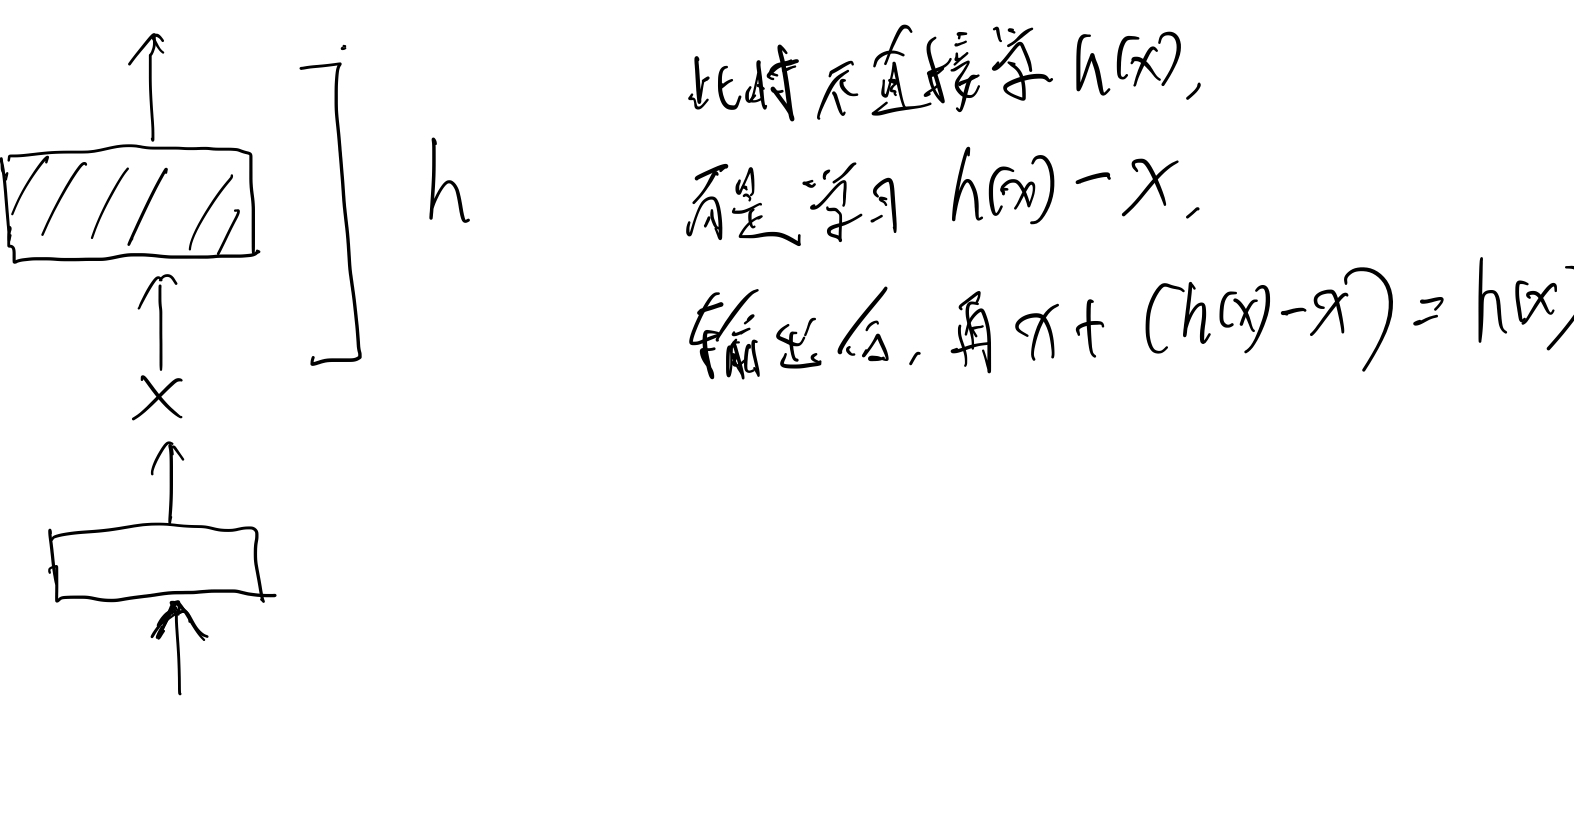 此时不直接学 h(x),
而是学习 h(x) - x,
输出后,再 x + (h(x)-x) = h(x)
h
x